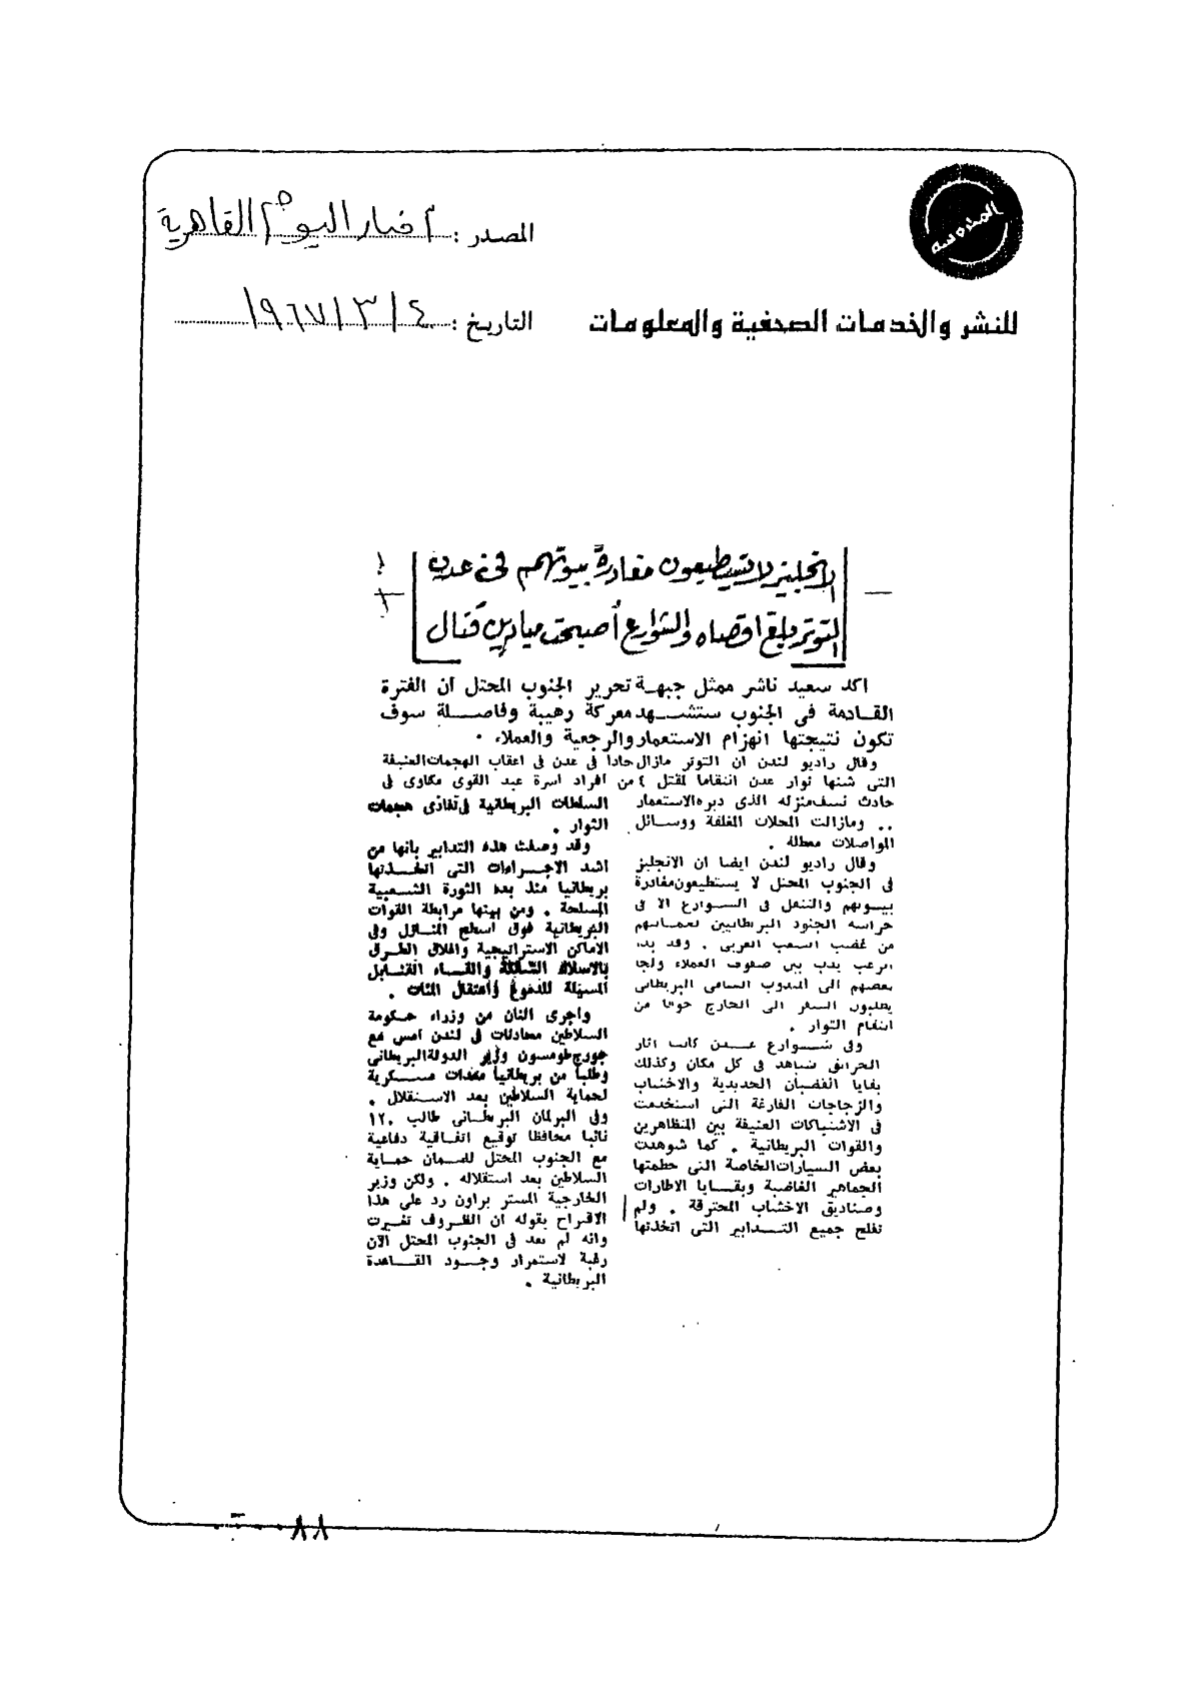 المدروسه
المصدر : أخبار اليوم القاهرية
للنشر والخدمات الصحفية والمعلومات
التاريخ : ٤ / ٣ / ١٩٦٧
الانجليز لا يستطيعون مغادرة بيوتهم في عدن
التوتر بلغ اقصاه والشوارع أصبحت ميادين قتال
اكد سعيد ناشر ممثل جبهة تحرير الجنوب المحتل ان الفترة
القادمة فى الجنوب ستشهد معركة رهيبة وفاصلة سوف
تكون نتيجتها انهزام الاستعمار والرجعية والعملاء .
وقال راديو لندن ان التوتر مازال حادا فى عدن فى اعقاب الهجمات العنيفة
التى شنها ثوار عدن انتقاما لمقتل ٤ من افراد اسرة عبد القوى مكاوى فى
حادث نسف منزله الذى دبره الاستعمار
.. ومازالت المحلات المغلقة ووسائل
المواصلات معطلة .
وقال راديو لندن ايضا ان الانجليز
فى الجنوب المحتل لا يستطيعون مغادرة
بيوتهم والتنقل فى الشوارع الا فى
حراسة الجنود البريطانيين لحمايتهم
من غضب الشعب العربى . وقد بدا
الرعب يدب بين صفوف العملاء ولجا
بعضهم الى المندوب السامى البريطانى
يطلبون السفر الى الخارج خوفا من
انتقام الثوار .
وفى شوارع عدن كانت اثار
الحرائق تشاهد فى كل مكان وكذلك
بقايا القضبان الحديدية والاخشاب
والزجاجات الفارغة التى استخدمت
فى الاشتباكات العنيفة بين المتظاهرين
والقوات البريطانية . كما شوهدت
بعض السيارات الخاصة التى حطمتها
الجماهير الغاضبة وبقايا الاطارات
وصناديق الاخشاب المحترقة . ولم
تفلح جميع التدابير التى اتخذتها
السلطات البريطانية فى تفادى هجمات
الثوار .
وقد وصفت هذه التدابير بانها من
اشد الاجراءات التى اتخذتها
بريطانيا منذ بدء الثورة الشعبية
المسلحة . ومن بينها مرابطة القوات
البريطانية فوق اسطح المنازل وفى
الاماكن الاستراتيجية واغلاق الطرق
بالاسلاك الشائكة والقاء القنابل
المسيلة للدموع واعتقال المئات .
واجرى اثنان من وزراء حكومة
السلاطين محادثات فى لندن امس مع
جورج طومسون وزير الدولة البريطانى
وطلبا من بريطانيا معدات عسكرية
لحماية السلاطين بعد الاستقلال .
وفى البرلمان البريطانى طالب ١٢٠
نائبا محافظا توقيع اتفاقية دفاعية
مع الجنوب المحتل لضمان حماية
السلاطين بعد استقلاله . ولكن وزير
الخارجية المستر براون رد على هذا
الاقتراح بقوله ان الظروف تغيرت
وانه لم يعد فى الجنوب المحتل الآن
رغبة لاستمرار وجود القاعدة
البريطانية .
٨٨